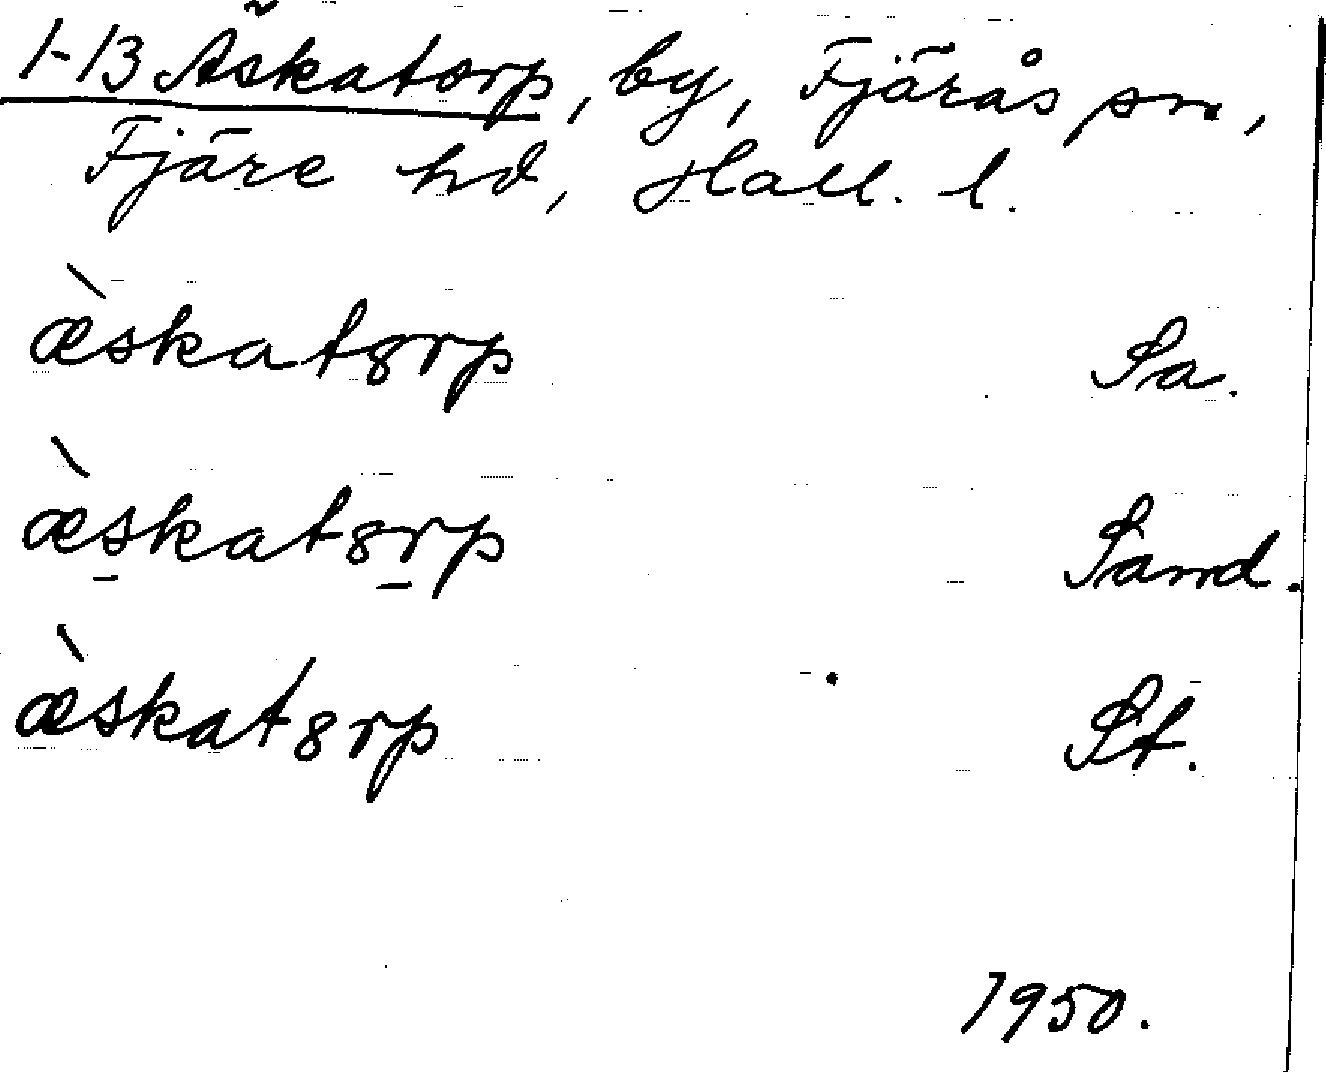 1-13 Äskatorp, by, Fjärås sn,
Fjäre hd, Hall. l.
æ̀skatȣrp Sa.
æ̀skatȣrp Sand.
æ̀skatȣrp St.
1950.